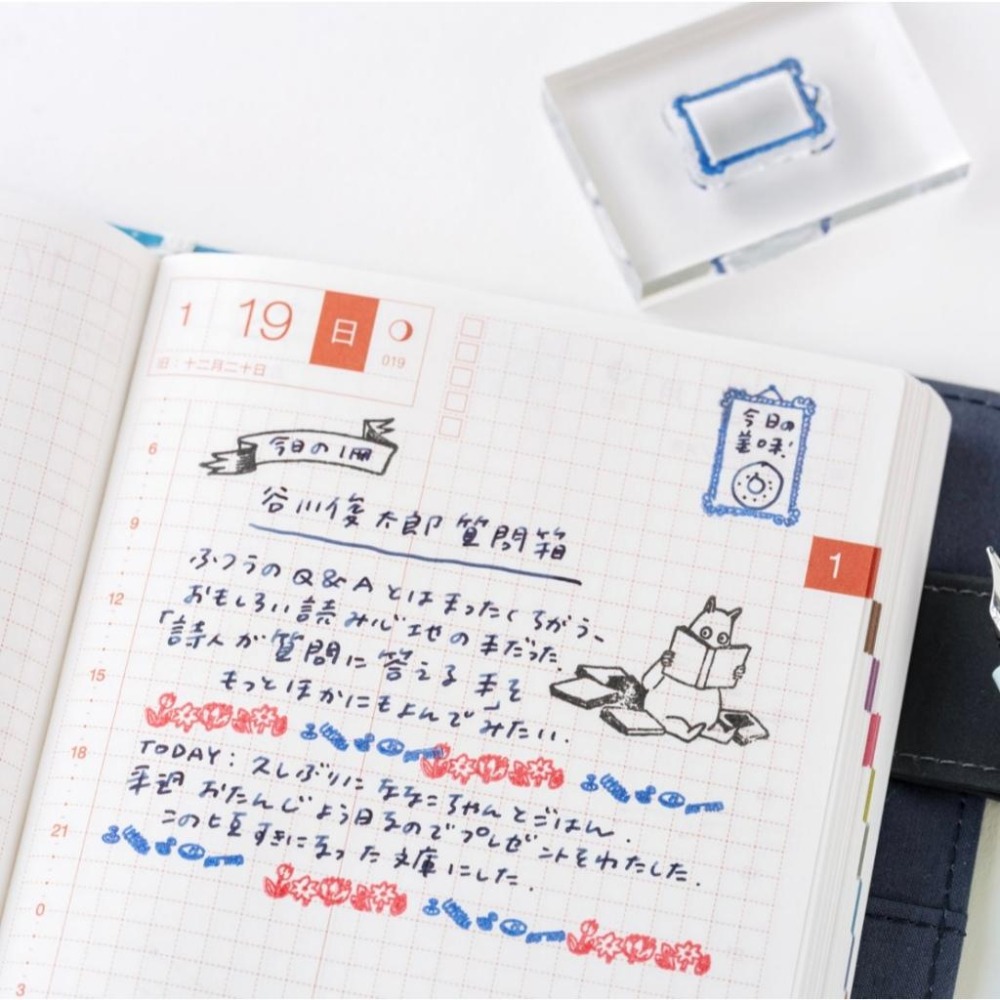 1 19 日
旧 十二月二十日 019
今日の
美味!
今日の1冊
谷川俊太郎質問箱
ふつうのQ&Aとはまったくちがう、
おもしろい読み心地の本だった。
「詩人が質問に答える本」を
もっとほかにもよんでみたい。
TODAY: 久しぶりにななこちゃんとごはん.
来週おたんじょう日なのでプレゼントをわたした.
このごろすきになった文庫にした.
1
6
9
12
15
18
21
0
3